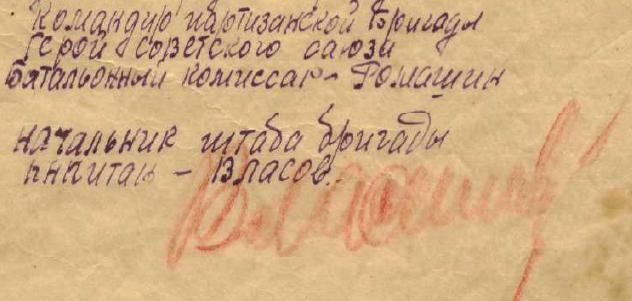 Командир партизанской бригады
Герой советского союза
Батальонный комиссар - Ромашин
начальник штаба бригады
капитан - Власов.